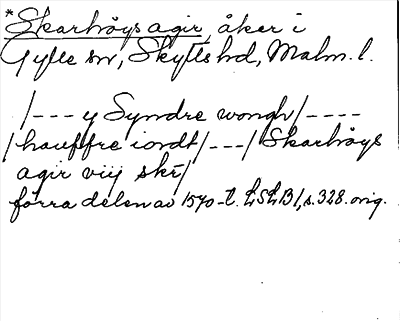 *Skarhöys agir, åker i
Gylle sn, Skytts hd, Malm. l.
/--- y Syndre wongh/----
/hauffre iordt/---/Skarhöys
agir viij skr/
förra delen av 1570-t. LSLB1, s. 328. orig.